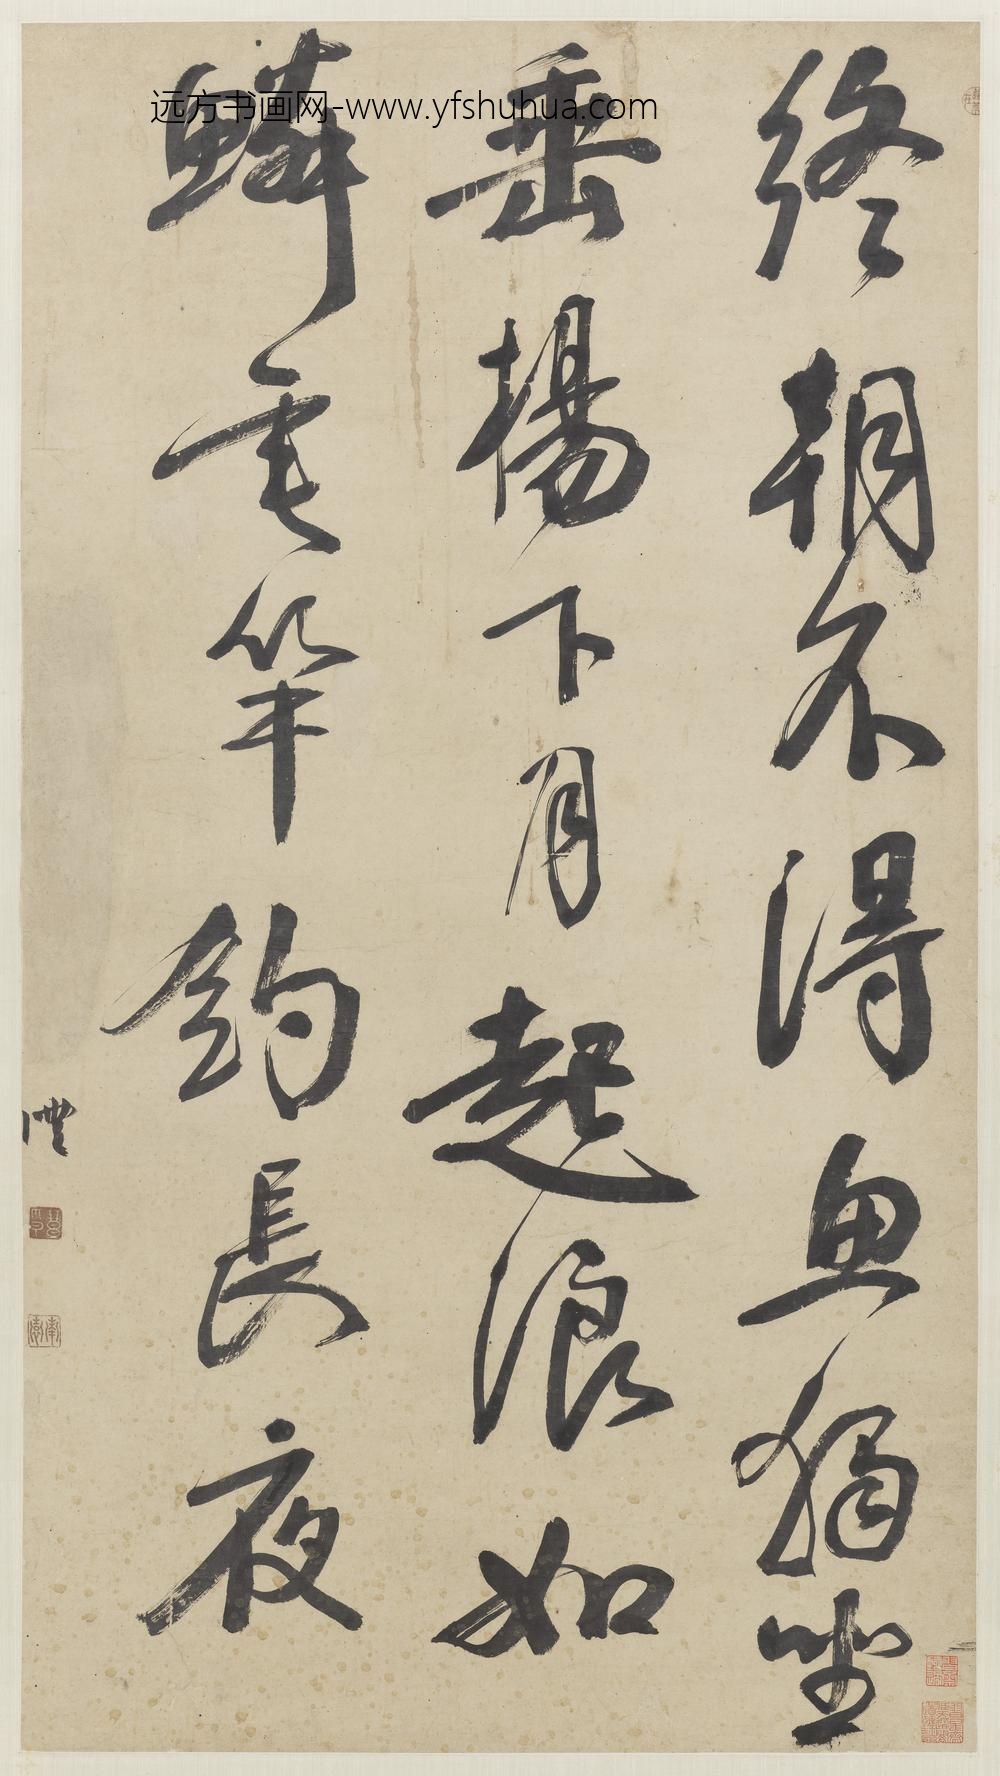 远方书画网-www.yfshuhua.com
终朝不得鱼独坐
垂杨下月起浪如
鳞垂竿钓长夜